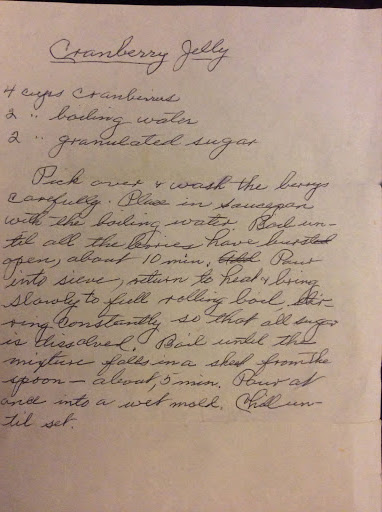 Cranberry Jelly
4 cups Cranberries
2 " boiling water
2 " granulated sugar
Pick over & wash the berrys
carefully. Place in saucepan
with the boiling water Boil un-
til all the berries have bursted
open, about 10 min. Pour
into sieve, return to heat & bring
slowly to full rolling boil, stir
ring constantly so that all sugar
is dissolved. Boil until the
mixture falls in a sheet from the
spoon — about, 5 min. Pour at
once into a wet mold. Chill un-
til set.